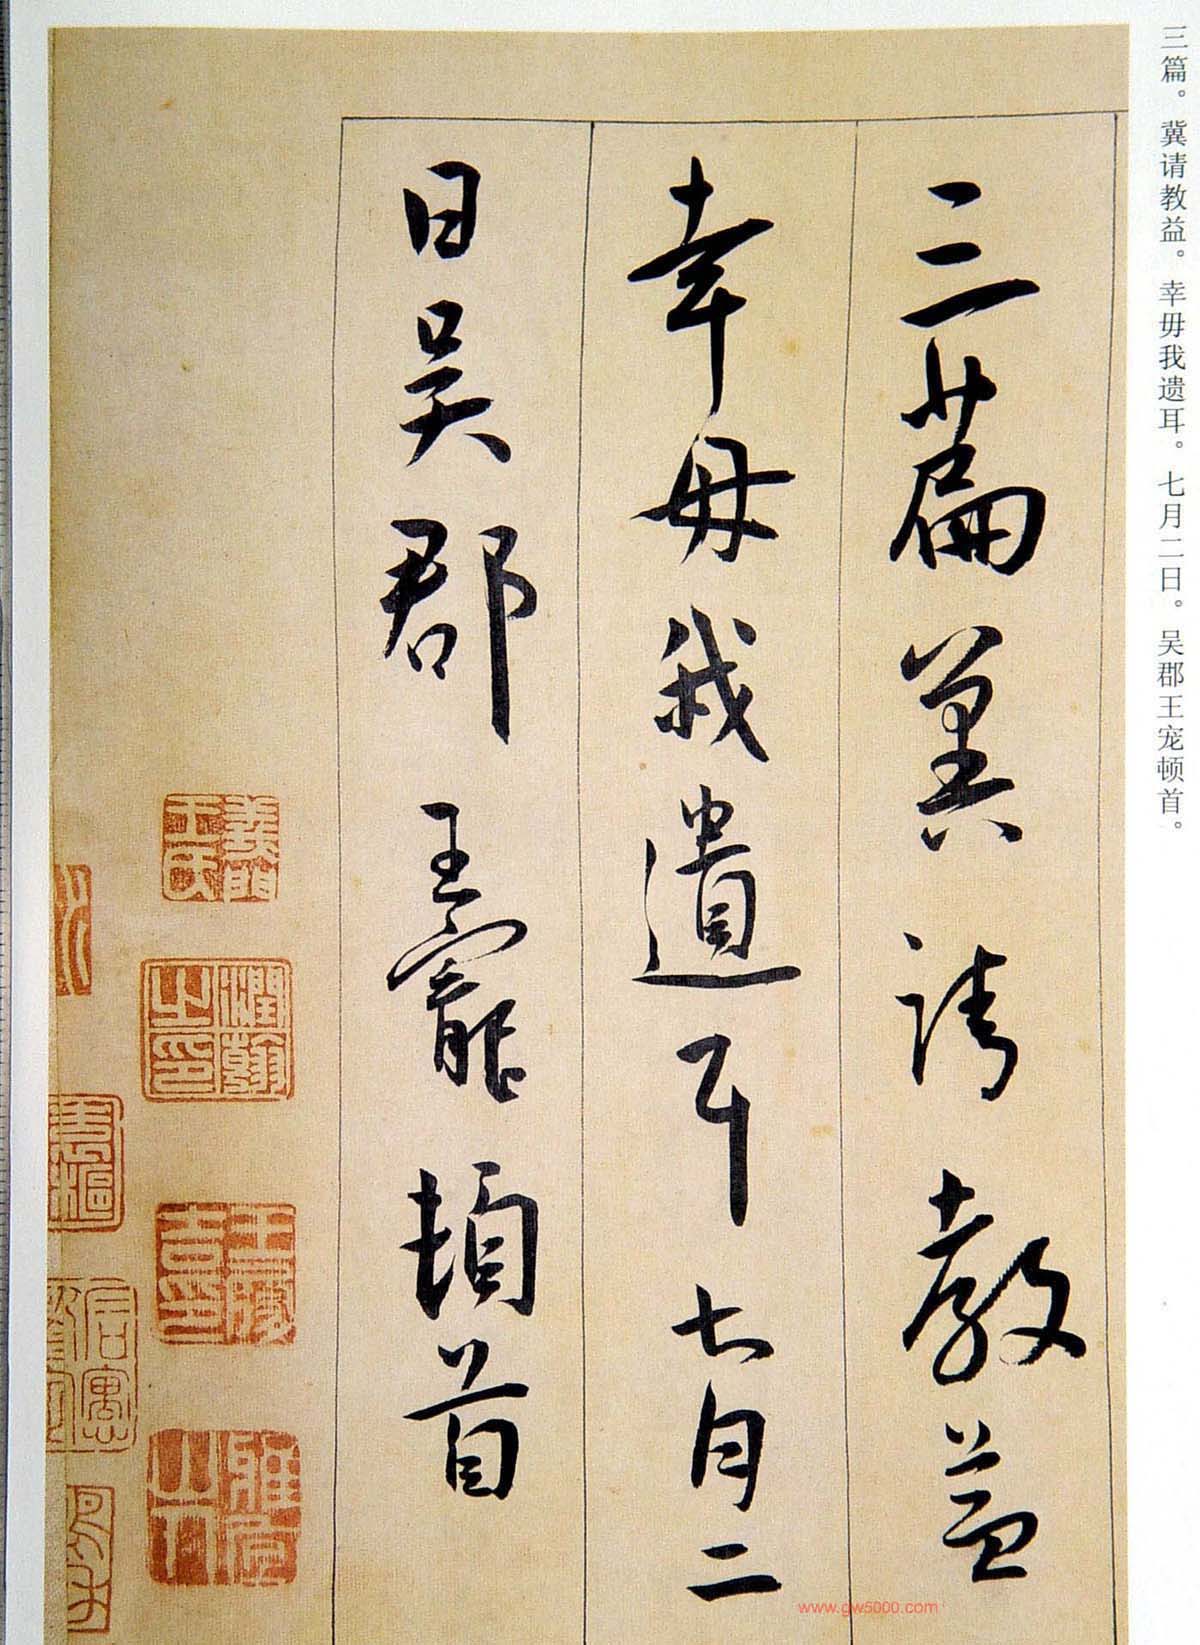 三篇。冀请教益。幸毋我遗耳。七月二日。吴郡王宠顿首。
三篇冀請教益
幸毋我遺耳七月二
日吳郡王寵頓首
王氏
潤翰之印
www.gw5000.com